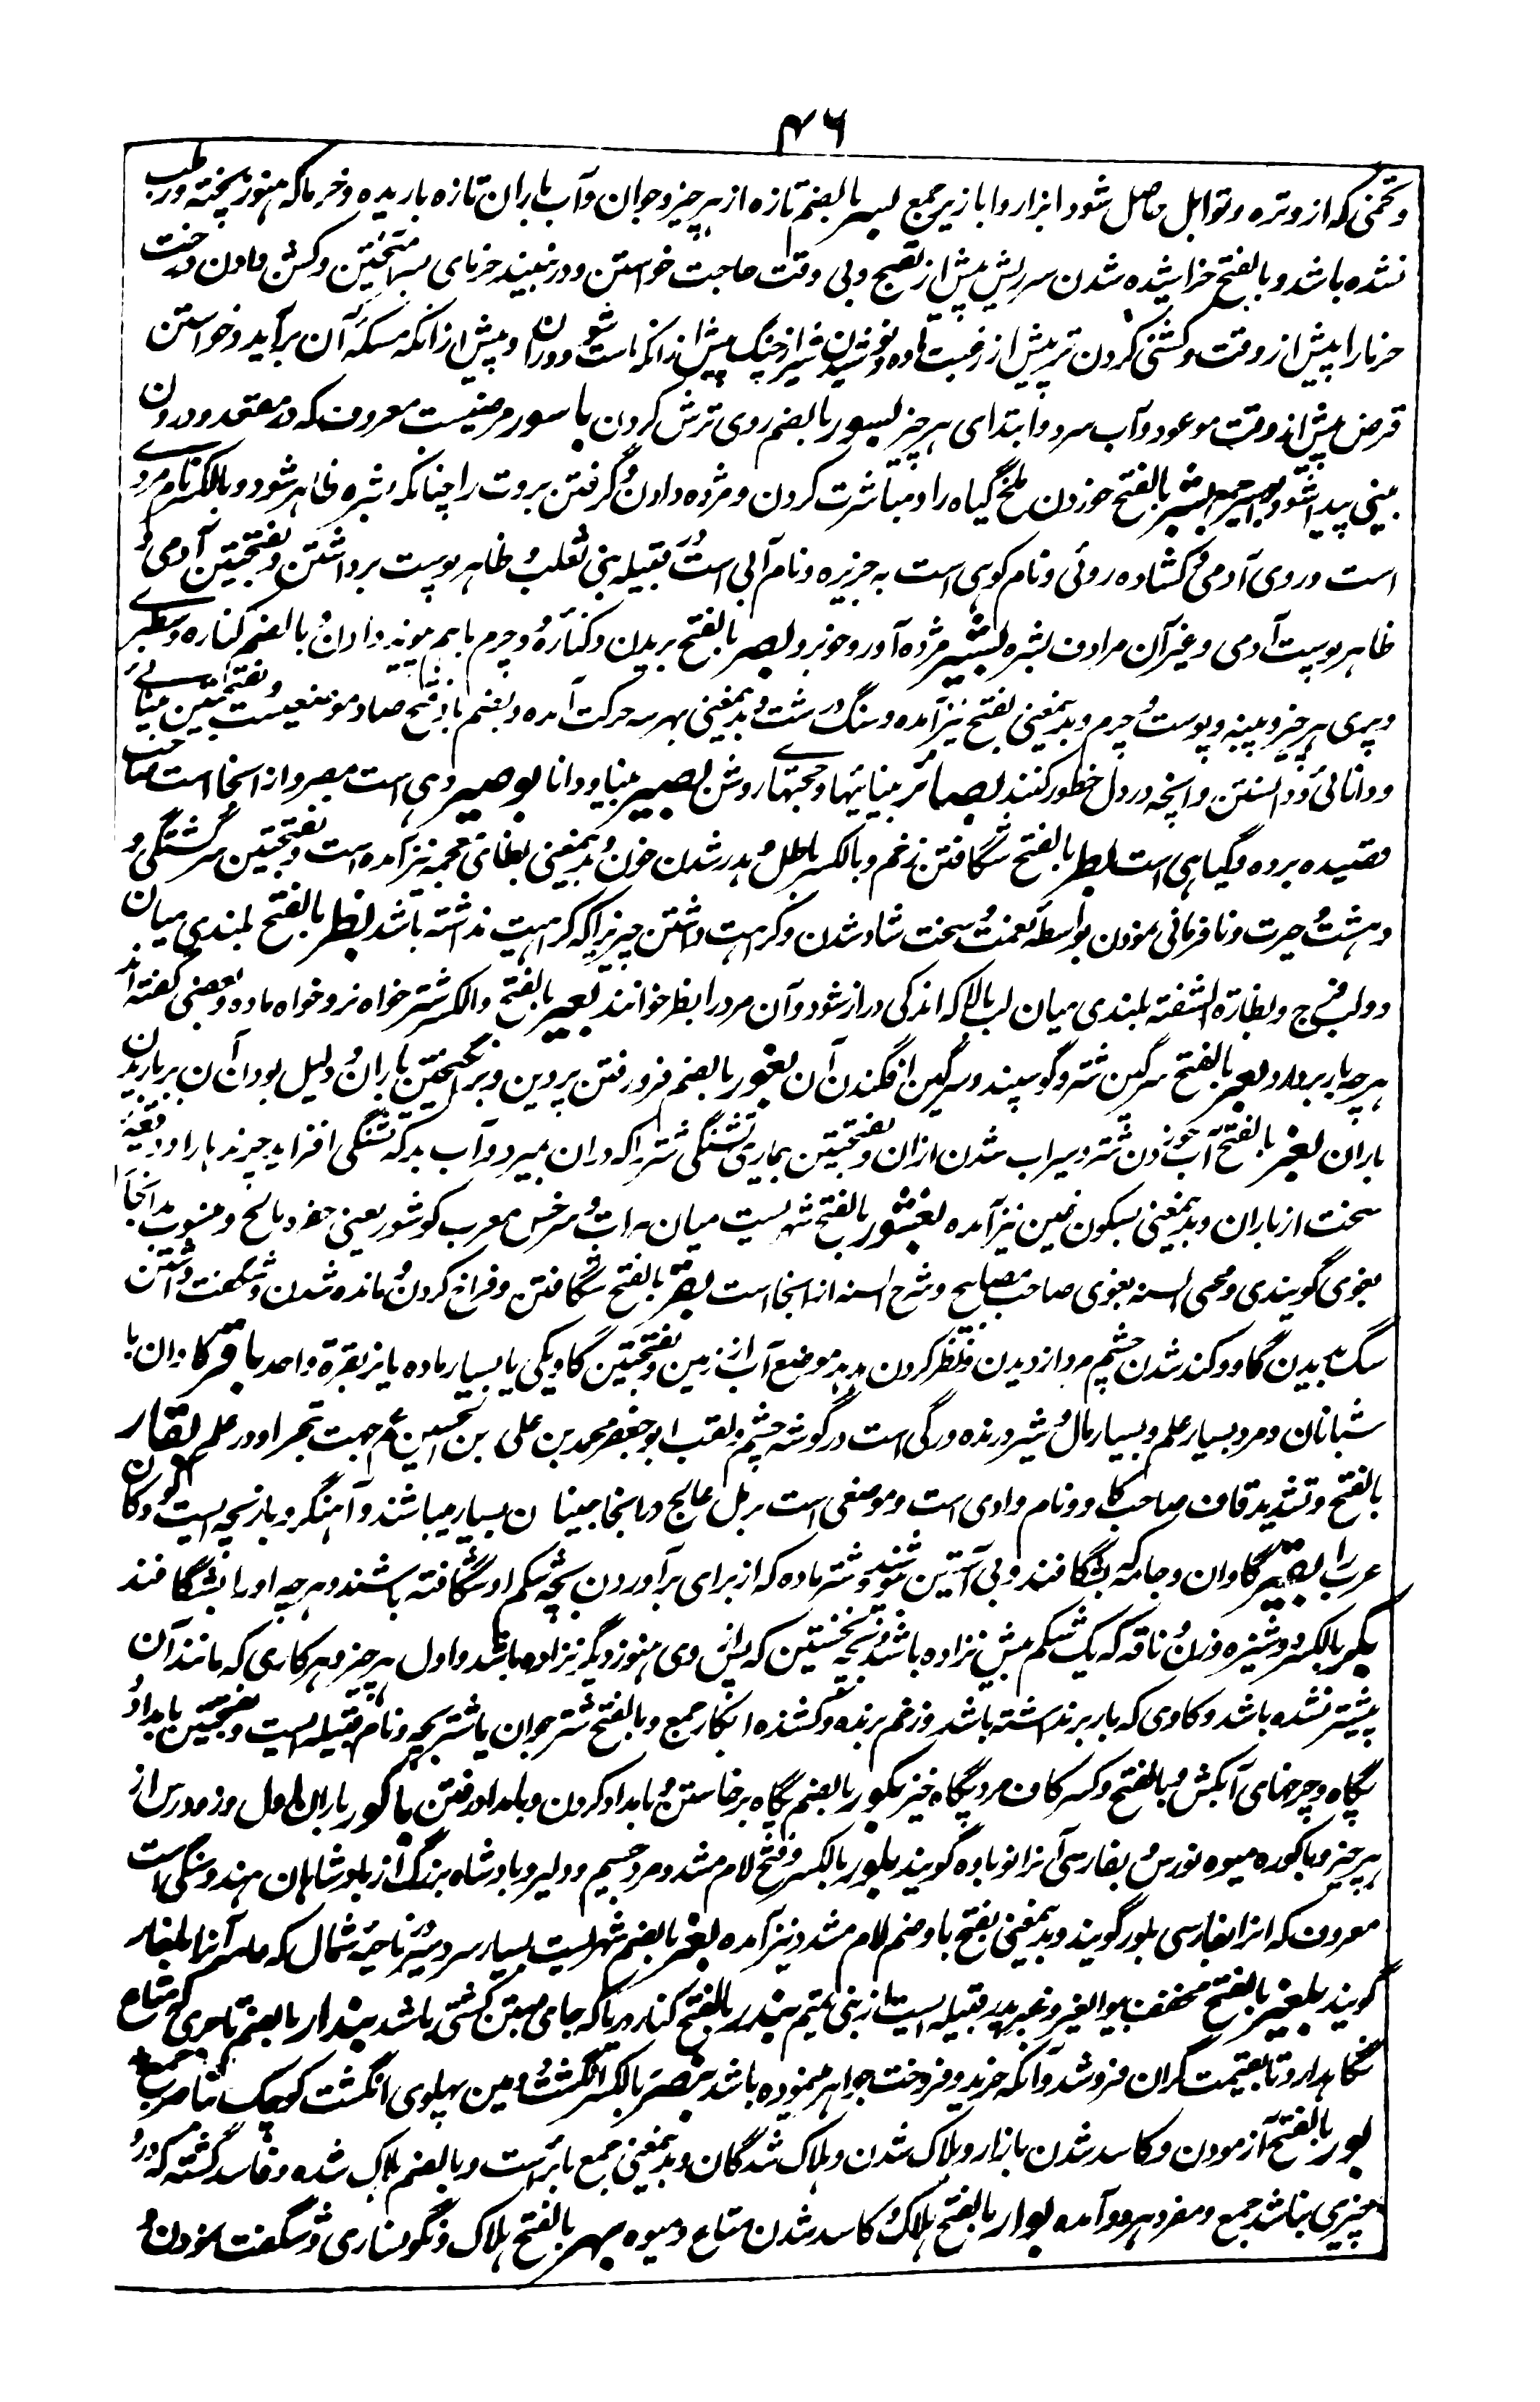 ۴۶
و تخمی که از و تره و توابل حاصل شود ابزار و ابازیر جمع بسر بالضم تازه از هر چیز و جوان و آب باران تازه باریده و خرما که هنوز پخته و رطب
نشده باشد و بالفتح خراشیده شدن سر ریش پیش از نضج و بی وقت حاجت خواستن و در نبیند خرمای بسر آمیختن و کشن دادن درخت
خرما را پیش از وقت و کشنی کردن نر پیش از رغبت ماده و نوشیدن شیر از خیک پیش از آنکه ماست شود و دوران و پیش از آنکه مسکه آن برآید و خواستن
قرض پیش از وقت موعود و آب سرد و ابتدای هر چیز بسور بالضم روی ترش کردن باسور مرضیست معروف که در مقعد و درون
بینی پیدا شود بواسیر جمع بشر بالفتح خوردن ملخ گیاه را و مباشرت کردن و مژده دادن و گرفتن بروت را چنانکه بشره ظاهر شود و بالکسر نام مردی
است و روی آدمی و کشاده روئی و نام کوهی است به جزیره و نام آبی است قبیله بنی تغلب و ظاهر پوست برداشتن و بفتحتین آدمی و
ظاهر پوست آدمی و غیر آن مرادف بشره بشیر مژده آور و خوبرو بصر بالفتح بریدن و کناره و چرم با هم پیوند دادن و بالضم کناره و سطبری
و پری هر چیز و پینه و پوست و چرم و بدینمعنی بفتح نیز آمده و سنگ درشت و بدینمعنی بهر سه حرکت آمده و بضم با و فتح صاد موضعیست و بفتحتین بینائی
و دانائی و دانستن و آنچه در دل خطور کند بصائر بینائیها و حجتهای روشن بصیر بینا و دانا بوصیر دهی است بمصر و از انجا است صاحب
قصیده برده و گیاهی است بطر بالفتح شگافتن زخم و بالکسر باطل و هدر شدن خون و بدینمعنی بظای معجمه نیز آمده است و بفتحتین سرگشتگی و
دهشت و حیرت و نافرمانی نمودن بواسطه نعمت و سخت شاد شدن و کراهت داشتن چیزیرا که کراهیت نداشته باشد بظر بالفتح بلندی میان
دو لب فرج و بظارة الشفته بلندی میان لب بالا که اندکی دراز شود و آن مرد را ابظر خوانند بعیر بالفتح و الکسر شتر خواه نر و خواه ماده و بعضی گفته اند
هر چه بار بردارد بعر بالفتح سرگین شتر و گوسپند و سرگین افگندن آن بغور بالضم فرو رفتن پروین و برانگیختن باران و دلیل بودن آن بر باریدن
باران بغر بالفتح آب خوردن شتر و سیراب شدن از آن و بفتحتین بیماری تشنگی شتر را که دران بمیرد و آب بد که تشنگی افزاید چرندها را و دفعه
سخت از باران و بدینمعنی بسکون غین نیز آمده بغشور بالفتح شهریست میان هرات و سرخس معرب کوشور یعنی حفره مالح و منسوب بدانجا
بغوی گویند و محی السنه بغوی صاحب مصابیح و شرح السنه از انجا است بقر بالفتح شگافتن و فراخ کردن و مانده شدن و شگفت داشتن
سگ به دیدن گاو و کند شدن چشم مرد از دیدن و نظر کردن هدهد موضع آب از زمین و بفتحتین گاو یکی یا بسیار ماده یا نر بقرة واحد باقر گاوان با
شبانان و مرد بسیار علم و بسیار مال و شیر درنده و رگی است در گوشه چشم و لقب ابو جعفر محمد بن علی بن الحسین ع م جهت تبحر او در علم بقار
بالفتح و تشدید قاف صاحب گاو و نام وادی است و موضعی است برمل عالج در انجا جنیان بسیار میباشند و آهنگر و بازیچه ایست کودکان
عرب را بقیر گاوان و جامه که بشگافند و بی آستین پوشند و شتر ماده که از برای برآوردن بچه شکم او شگافته باشند و هر چه او را بشگافند
بکر بالکسر دوشیزه و زن و ناقه که یک شکم بیش نزاده باشد و بچه نخستین که پس از وی هنوز دیگر نزاده باشد و اول هر چیز و هر کاری که مانند آن
پیشتر نشده باشد و گاوی که بار برنداشته باشد و زخم برنده و کشنده ابکار جمع و بالفتح شتر جوان یا شتر بچه و نام قبیله ایست و بفتحتین بامداد و
پگاه و چرخهای آبکش و بالفتح و کسر کاف مرد پگاه خیز بکور بالضم پگاه برخاستن و بامداد کردن و بامداد رفتن باکور باران اول و زودرس از
هر چیز و باکوره میوه نورس و بفارسی آنرا نوباده گویند بلور بالکسر و فتح لام مشدد مرد جسیم و دلیر و بادشاه بزرگ از بادشاهان هند و سنگی است
معروف که انرا بفارسی بلور گویند و بدینمعنی بفتح با و ضم لام مشدد نیز آمده بلغر بالضم شهریست بسیار سردسیر در ناحیه شمال که عامه آنرا بلغار
گویند بلغیر بالفتح مخفف بنو العنبر و عنبر پدر قبیله ایست از بنی تمیم بندر بالفتح کنار دریا که جای بستن کشتی باشد بندار بالضم تاجری که متاع
نگاهدارد تا بقیمت گران فروشد و آنکه خرید و فروخت جواهر مینموده باشد بنصر بالکسر انگشت دومین پهلوی انگشت کوچک بناصر جمع
بور بالفتح آزمودن و کاسد شدن بازار و هلاک شدن و هلاک شدگان و بدینمعنی جمع بائر است و بالضم هلاک شده و فاسد گشته که درو
چیزی نباشد جمع و مفرد هر دو آمده بوار بالفتح هلاک و کاسد شدن متاع و میوه بهر بالفتح هلاک و نگونساری و شگفت نمودن و